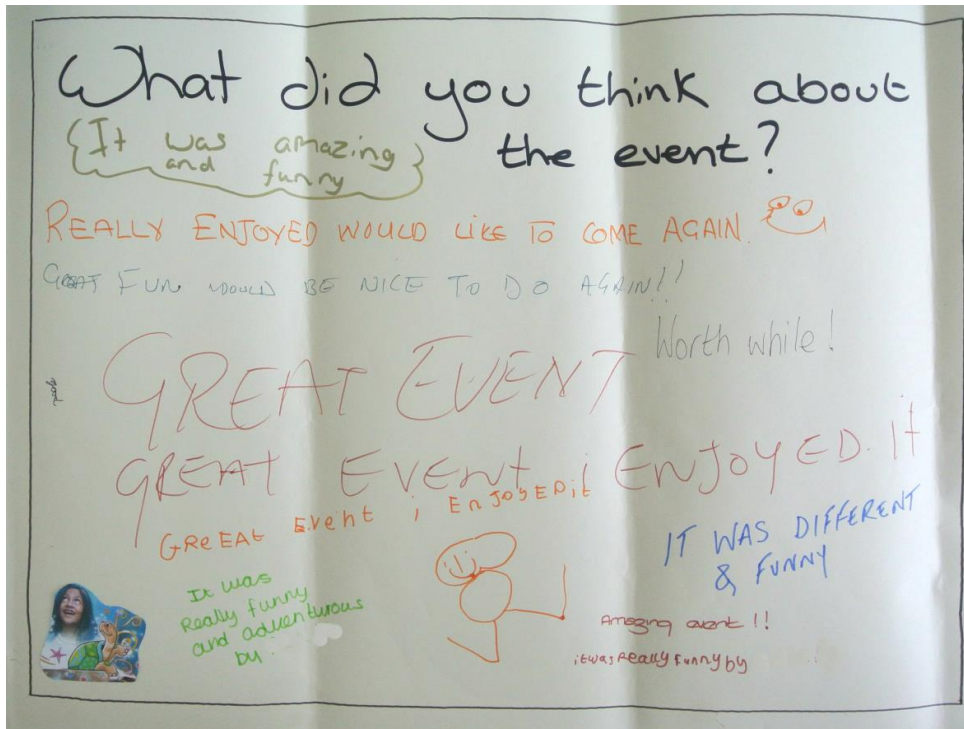 What did you think about
the event?
It was amazing
and funny
REALLY ENJOYED WOULD LIKE TO COME AGAIN
GREAT FUN WOULD BE NICE TO DO AGAIN!!
Worth while!
GREAT EVENT
GREAT EVENT i ENJOYED. It
GREEAt EVent i EnJoyED it
IT WAS DIFFERENT
& FUNNY
It was
Really funny
and adventurous
by
Amazing event!!
it was Really funny by